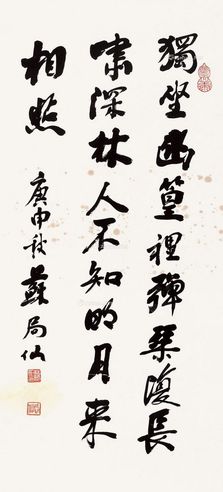 獨坐幽篁裡彈琴復長
嘯深林人不知明月来
相照
庚申秋蘇局仙